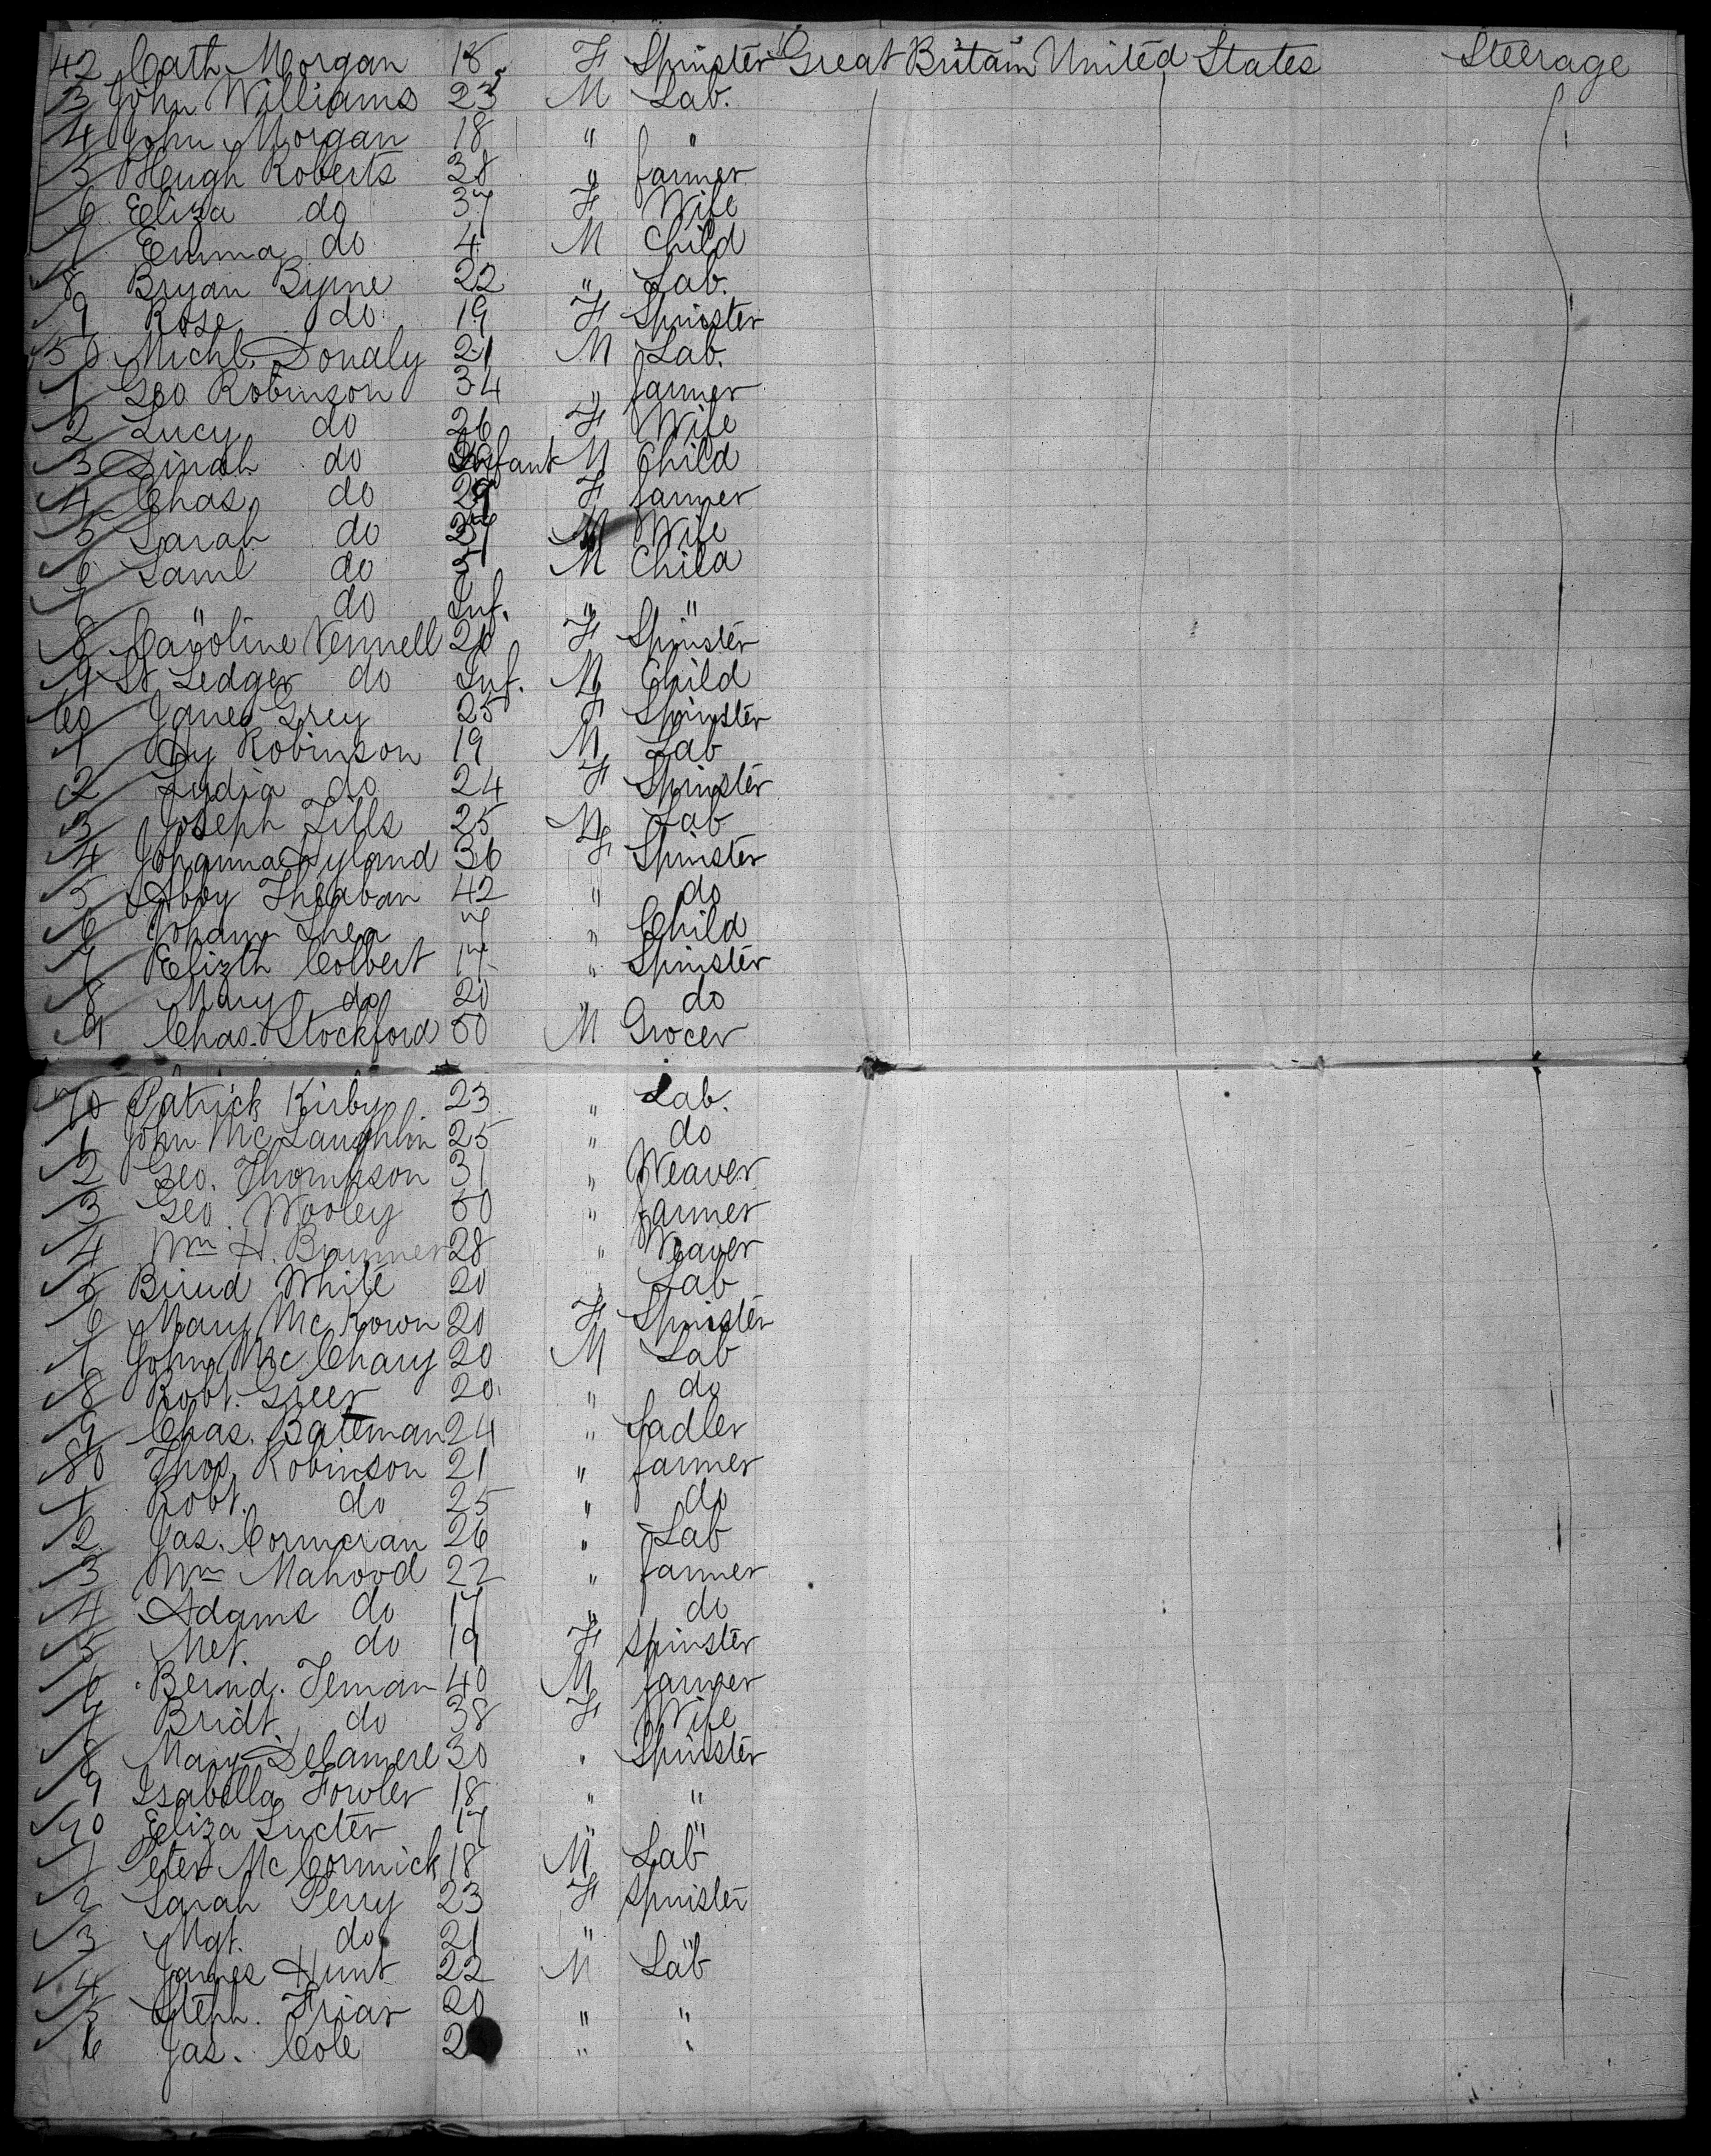 42 Cath. Morgan 18 F Spinster Great Britain United States Steerage
3 John Williams 23 M Lab.
4 John Morgan 18 " "
5 Hugh Roberts 38 " farmer
6 Eliza do 37 F Wife
7 Emma do 4 M Child
8 Bryan Byrne 22 " Lab.
9 Rose do 19 F Spinster
50 Michl. Donaly 21 M Lab.
1 Geo Robinson 34 " farmer
2 Lucy do 26 F Wife
3 Dinah do Infant M Child
4 Chas. do 29 F farmer
5 Sarah do 27 M Wife
6 Saml do 5 M Child
7 " do Inf. " "
8 Caroline Vennell 20 F Spinster
9 St Ledger do Inf. M Child
60 Jane Grey 25 F Spinster
1 Hy Robinson 19 M Lab
2 Lydia do 24 F Spinster
3 Joseph Tills 25 M Lab
4 Johanna Hyland 36 F Spinster
5 Abby 42 " do
6 Johann Shea 7 " Child
7 Elizth Colbert 17 " Spinster
8 Mary do 20 do
9 Chas. Stockford 50 M Grocer
70 Patrick Kirby 23 " Lab.
1 John McLaughlin 25 " do
2 Geo. Thompson 31 " Weaver
3 Geo Wooley 50 " farmer
4 Wm H. 28 " Weaver
5 White 20 " Lab
6 Mary McKown 20 F Spinster
7 John McChary 20 M Lab
8 Robt. Greer 20 " do
9 Chas. Bateman 24 " Sadler
80 Thos. Robinson 21 " farmer
1 Robt. do 25 " do
2 Jas. Corncran 26 " Lab
3 Wm Mahood 22 " farmer
4 Adams do 17 " do
5 do 19 F Spinster
6 Bernd. 40 M farmer
7 Bridt. do 38 F Wife
8 Mary Delamere 30 " Spinster
9 Isabella Fowler 18 " "
90 Eliza Lucter 17 " "
1 Peter McCormick 18 M Lab
2 Sarah Perry 23 F Spinster
3 Mgt. do 21 "
4 James Hunt 22 M Lab
5 Steph. Friar 20 " "
6 Jas. Cole 2 " "